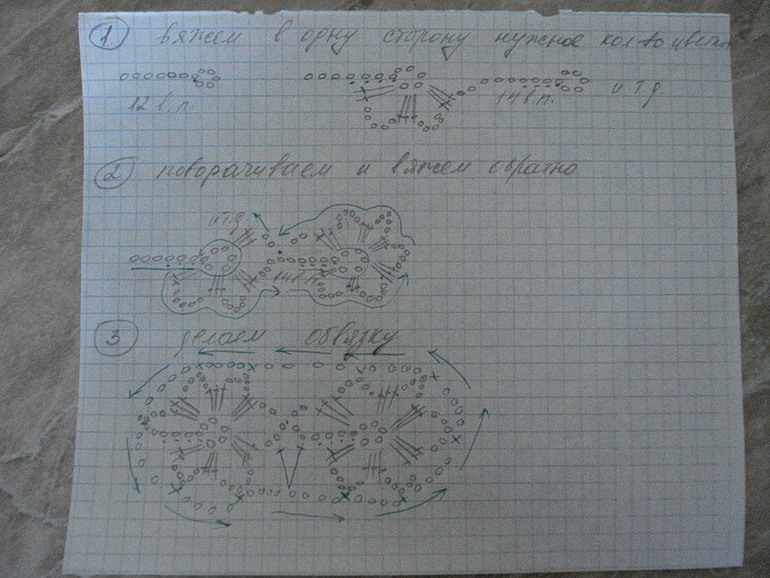 1 вяжем в одну сторону нужное кол-во цветов
12 в.п.
14 в п.
и т.д.
2 поворачиваем и вяжем обратно
и т.д.
14 в п
3 делаем обвязку